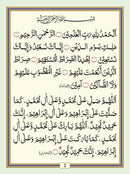 بِسْمِ اللهِ الرَّحْمٰنِ الرَّحِيْمِ
اَلْحَمْدُ لِلّٰهِ رَبِّ الْعٰلَمِيْنَ ۝ الرَّحْمٰنِ الرَّحِيْمِ ۝
مٰلِكِ يَوْمِ الدِّيْنِ ۝ اِيَّاكَ نَعْبُدُ وَاِيَّاكَ
نَسْتَعِيْنُ ۝ اِهْدِنَا الصِّرَاطَ الْمُسْتَقِيْمَ ۝ صِرَاطَ
الَّذِيْنَ اَنْعَمْتَ عَلَيْهِمْ غَيْرِ الْمَغْضُوْبِ عَلَيْهِمْ
وَلَا الضَّآلِّيْنَ
اَللّٰهُمَّ صَلِّ عَلٰى مُحَمَّدٍ وَّعَلٰى اٰلِ مُحَمَّدٍ
كَمَا صَلَّيْتَ عَلٰى اِبْرَاهِيْمَ وَعَلٰى اٰلِ اِبْرَاهِيْمَ اِنَّكَ
حَمِيْدٌ مَّجِيْدٌ اَللّٰهُمَّ بَارِكْ عَلٰى مُحَمَّدٍ وَّعَلٰى اٰلِ
مُحَمَّدٍ كَمَا بَارَكْتَ عَلٰى اِبْرَاهِيْمَ وَعَلٰى اٰلِ
اِبْرَاهِيْمَ اِنَّكَ حَمِيْدٌ مَّجِيْدٌ
2